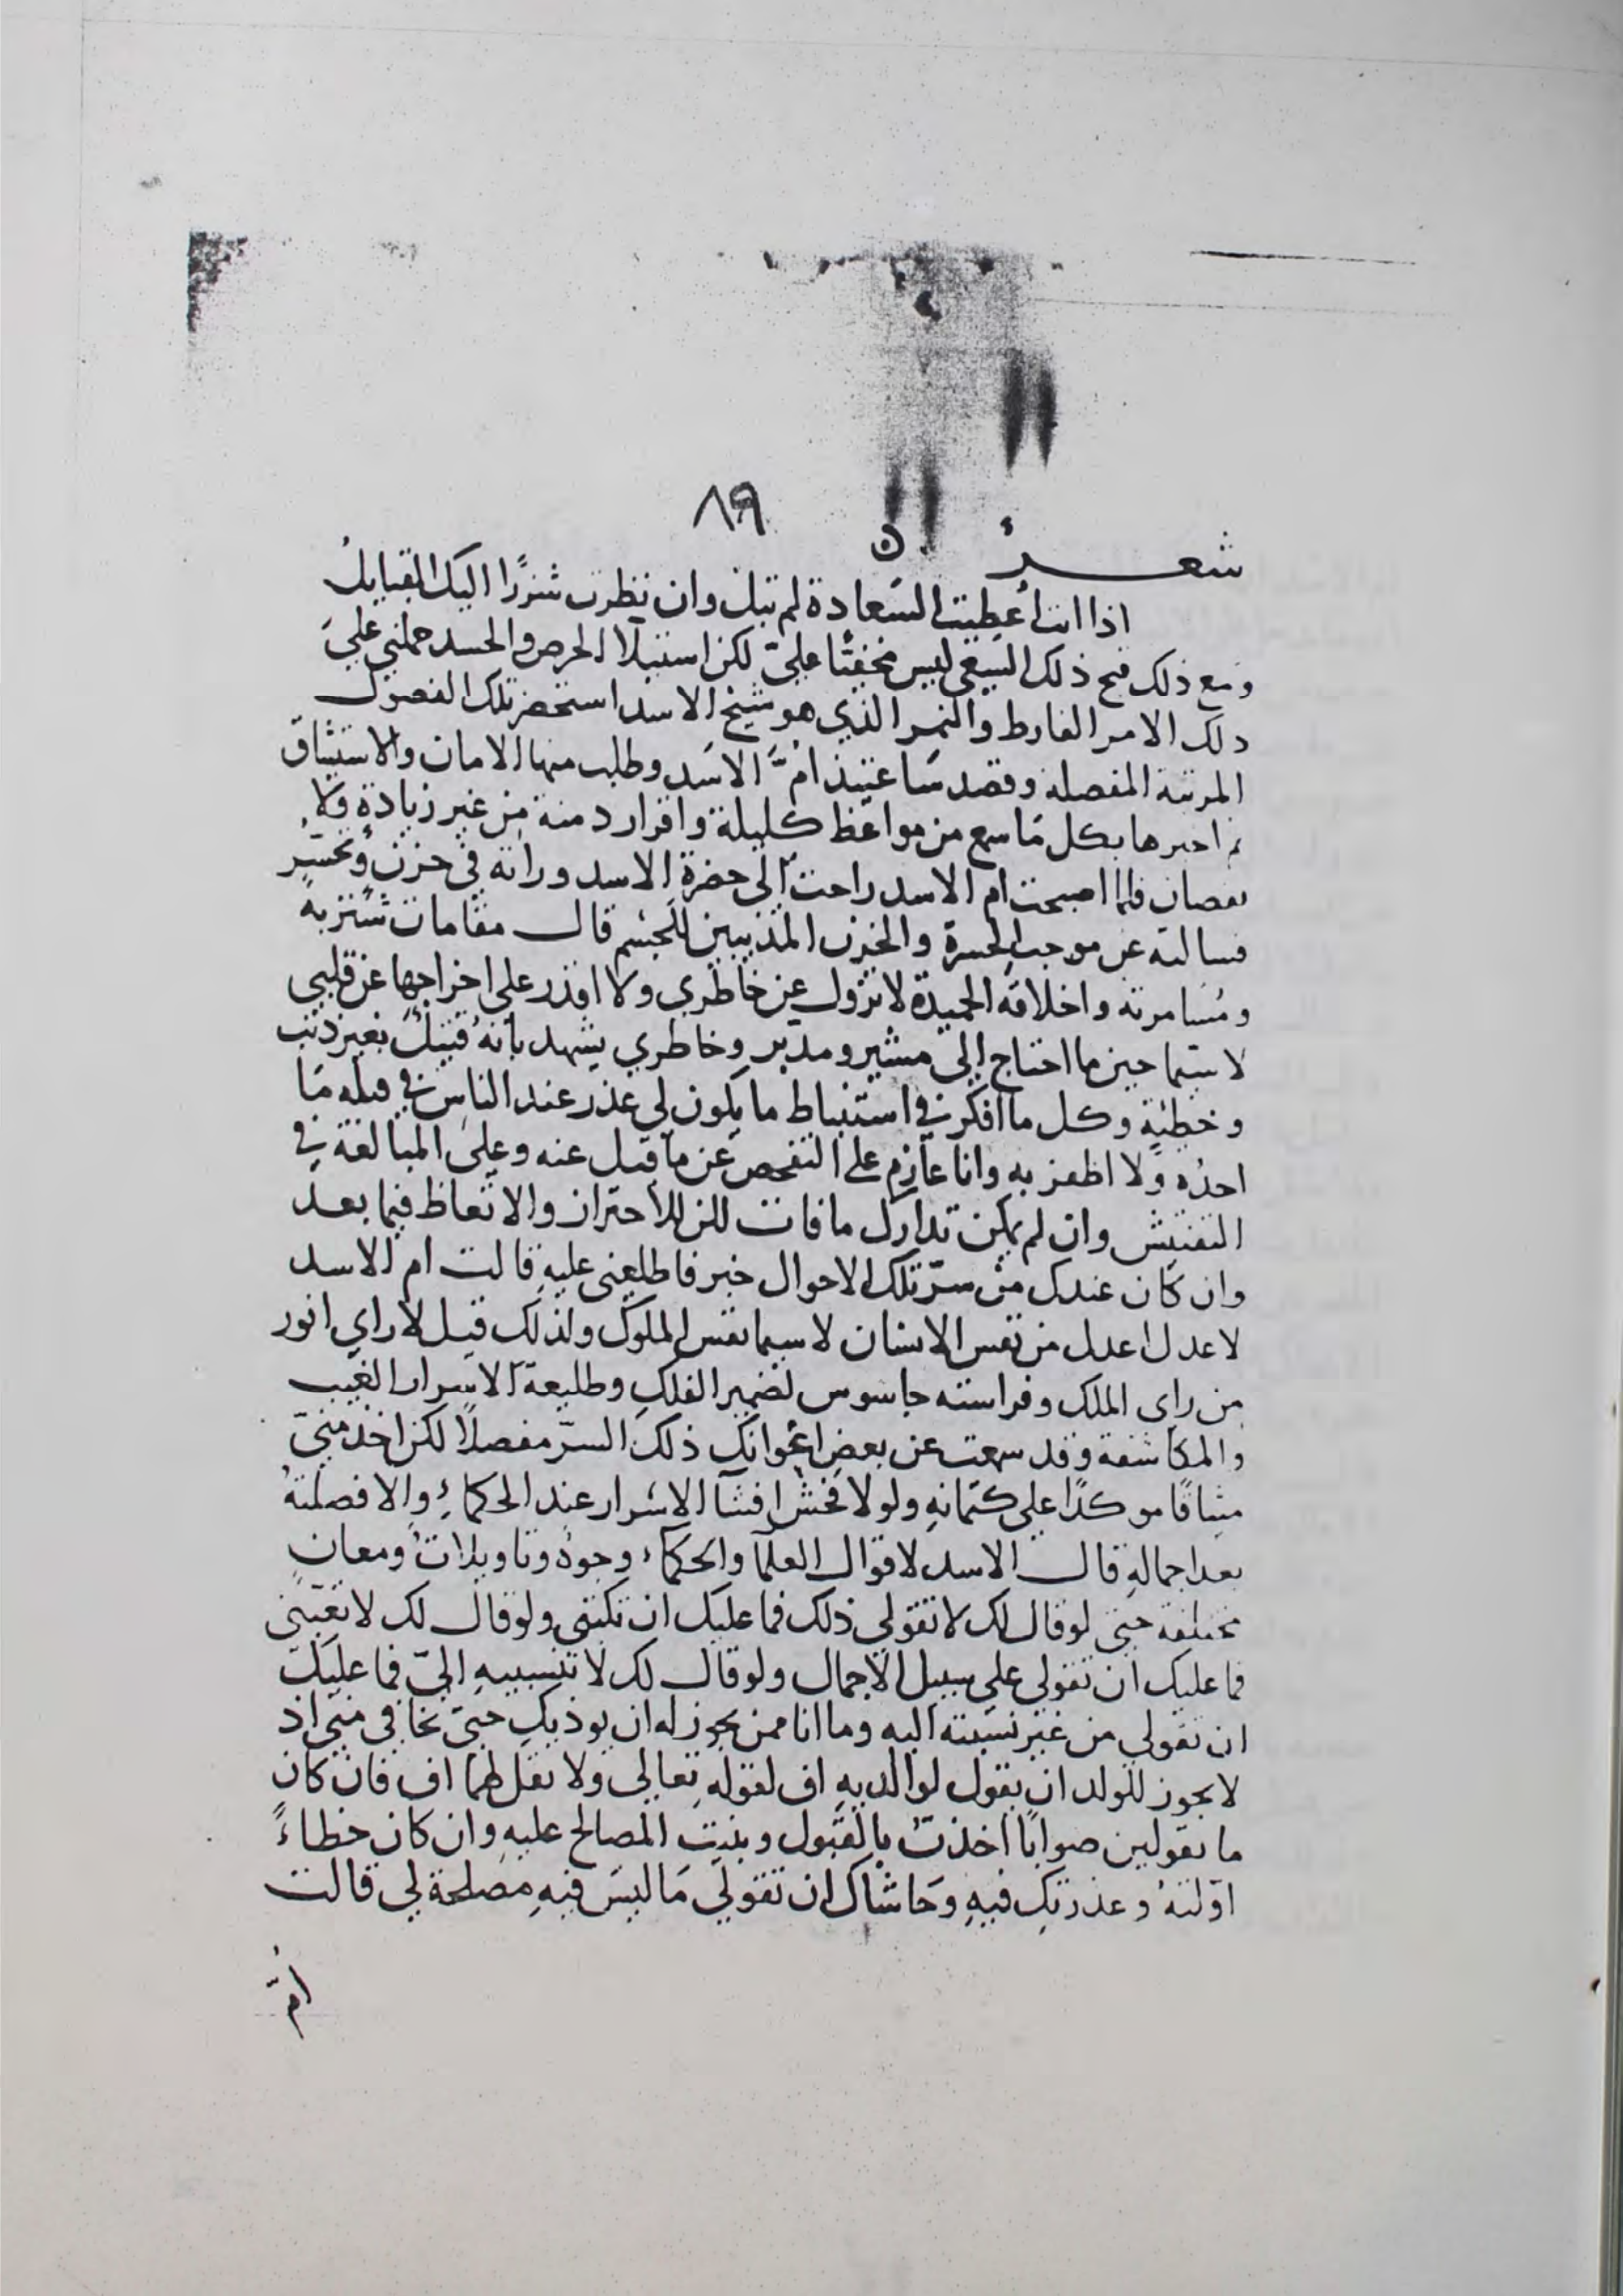 ٨٩
شعر ن
اذا انت أعطيت السعادة لم تبل وان نظرت شزرًا اليك القبايل
ومع ذلك قبح ذلك السعي ليس مخفيًا عليّ لكن استيلا الحرص والحسد حملني علي
ذلك الامر الفارط والنمر الذي هو شيخ الاسد استحضر تلك الفصول
المرتبة المفصلة وقصد ساعتيذ امَّ الاسد وطلب منها الامان والاستيثاق
ثم اخبرها بكل ما سمع من مواعظ كليلة واقرار دمنة من غير زيادة ولا
نقصان فلما اصبحت ام الاسد راحت الى حضرة الاسد وراته في حزن وتحسّر
فسالته عن موجب الحسرة والحزن المذيبين للجسم قال مقامات شنزبة
ومسامرته واخلاقه الحميدة لا تزول عن خاطري ولا اقدر على اخراجها عن قلبي
لا سيما حين ما احتاج إلى مشير ومدبر وخاطري يشهد بانه قتيل بغير ذنب
وخطية وكل ما افكر في استنباط ما يكون لي عذر عند الناس في قتله ما
اجده ولا اظفر به وانا عازم على التفحص عن ما قيل عنه وعلى المبالغة في
التفتيش وان لم يمكن تدارك ما فات لكن للاحتراز والاتعاظ فيما بعد
وان كان عندك من سرّ تلك الاحوال خبر فاطلعني عليه قالت ام الاسد
لا عدل اعدل من نفس الانسان لا سيما نفس الملوك ولذلك قيل لا راي انور
من راي الملك وفراسته جاسوس لضمير الفلك وطليعة الاسرار الغيب
والمكاشفة وقد سمعت عن بعض اعوانك ذلك السرّ مفصلًا لكن اخذ منيّ
ميثاقًا موكدًا على كتمانه ولولا فحش افشآ الاسرار عند الحكماءِ والا فصلته
بعد اجماله قال الاسد لاقوال العلمآ والحكمآء وجوه وتاويلات ومعان
مختلفة حتى لو قال لك لا تقولي ذلك فما عليك ان تكتبى ولو قال لك لا تعيّني
فما عليك ان تقولى على سبيل الاجمال ولو قال لك لا تنسبيه اليّ فما عليك
ان تقولي من غير نسبته اليه وما انا ممن يجوز له ان يوذيك حتى تخافى منى اذ
لا يجوز للولد ان يقول لوالديه اف لقوله تعالى ولا تقل لهما اف فان كان
ما تقولين صوابًا اخذت بالقبول وبنيت المصالح عليه وان كان خطاءً
اوّلته وعذرتك فيه وحاشاك ان تقولي ما ليس فيه مصلحة لي قالت
امّ